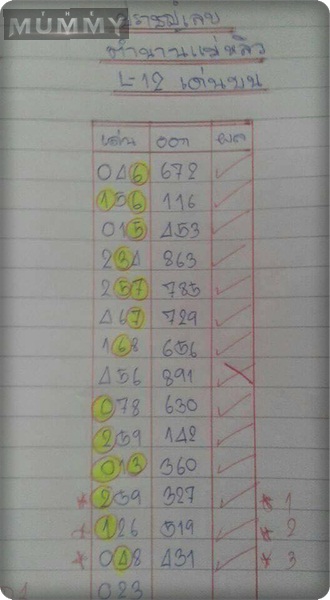 MUMMY
ตำนานแม่หลิว
L-12 เด่นบน
เด่น ออก ผล
046 672
156 116
015 453
234 863
257 785
467 729
168 656
456 891
078 630
259 142
013 360
* 239 327 * 1
* 126 519 * 2
* 048 431 * 3
023